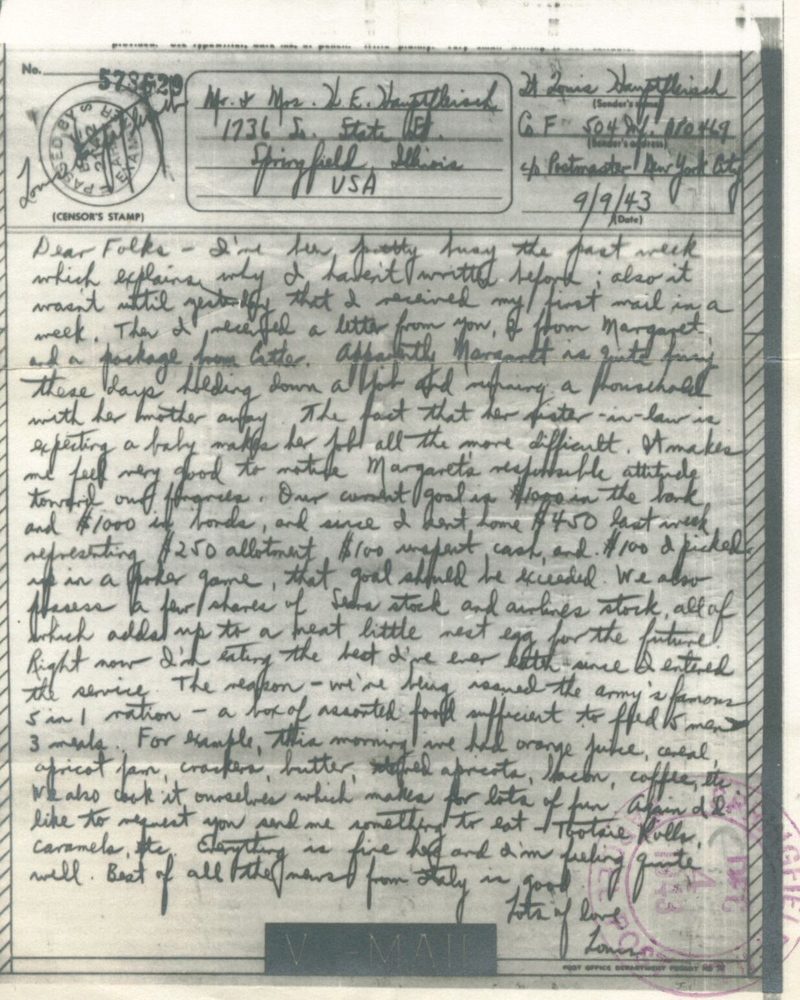 No. 578629
PASSED BY
ARMY EXAMINER
(CENSOR'S STAMP)
Mr. & Mrs. H. E. Hauptfleisch
1736 So. State St.
Springfield, Illinois
USA
Lt Louis Hauptfleisch
(Sender's name)
Co F 504 Inf. APO 469
(Sender's address)
c/o Postmaster New York City
9/9/43
(Date)
Dear Folks - I've been pretty busy the past week
which explains why I haven't written before; also it
wasn't until yesterday that I received my first mail in a
week. Then I received a letter from you, 2 from Margaret,
and a package from. Apparently Margaret is quite busy
these days holding down a job and running a household
with her mother away. The fact that her sister-in-law is
expecting a baby makes her job all the more difficult. It makes
me feel very good to notice Margaret's responsible attitude
toward our finances. Our current goal is $1000 in the bank
and $1000 in bonds, and since I sent home $450 last week
representing $250 allotment, $100 unspent cash, and $100 I picked
up in a poker game, that goal should be exceeded. We also
possess a few shares of Sears stock and airlines stock, all of
which adds up to a neat little nest egg for the future.
Right now I'm eating the best I've ever since I entered
the service. The reason - we're being issued the army's famous
5 in 1 ration - a box of assorted food sufficient to feed 5 men
3 meals. For example, this morning we had orange juice, cereal,
apricot jam, crackers, butter, stewed apricots, bacon, coffee, etc.
We also cook it ourselves which makes for lots of fun. Again I'd
like to request you send me something to eat - Tootsie Rolls,
caramels, etc. Everything is fine here and I'm feeling quite
well. Best of all the news from Italy is good.
Lots of love
Louis
V - MAIL
POST OFFICE DEPARTMENT PERMIT NO